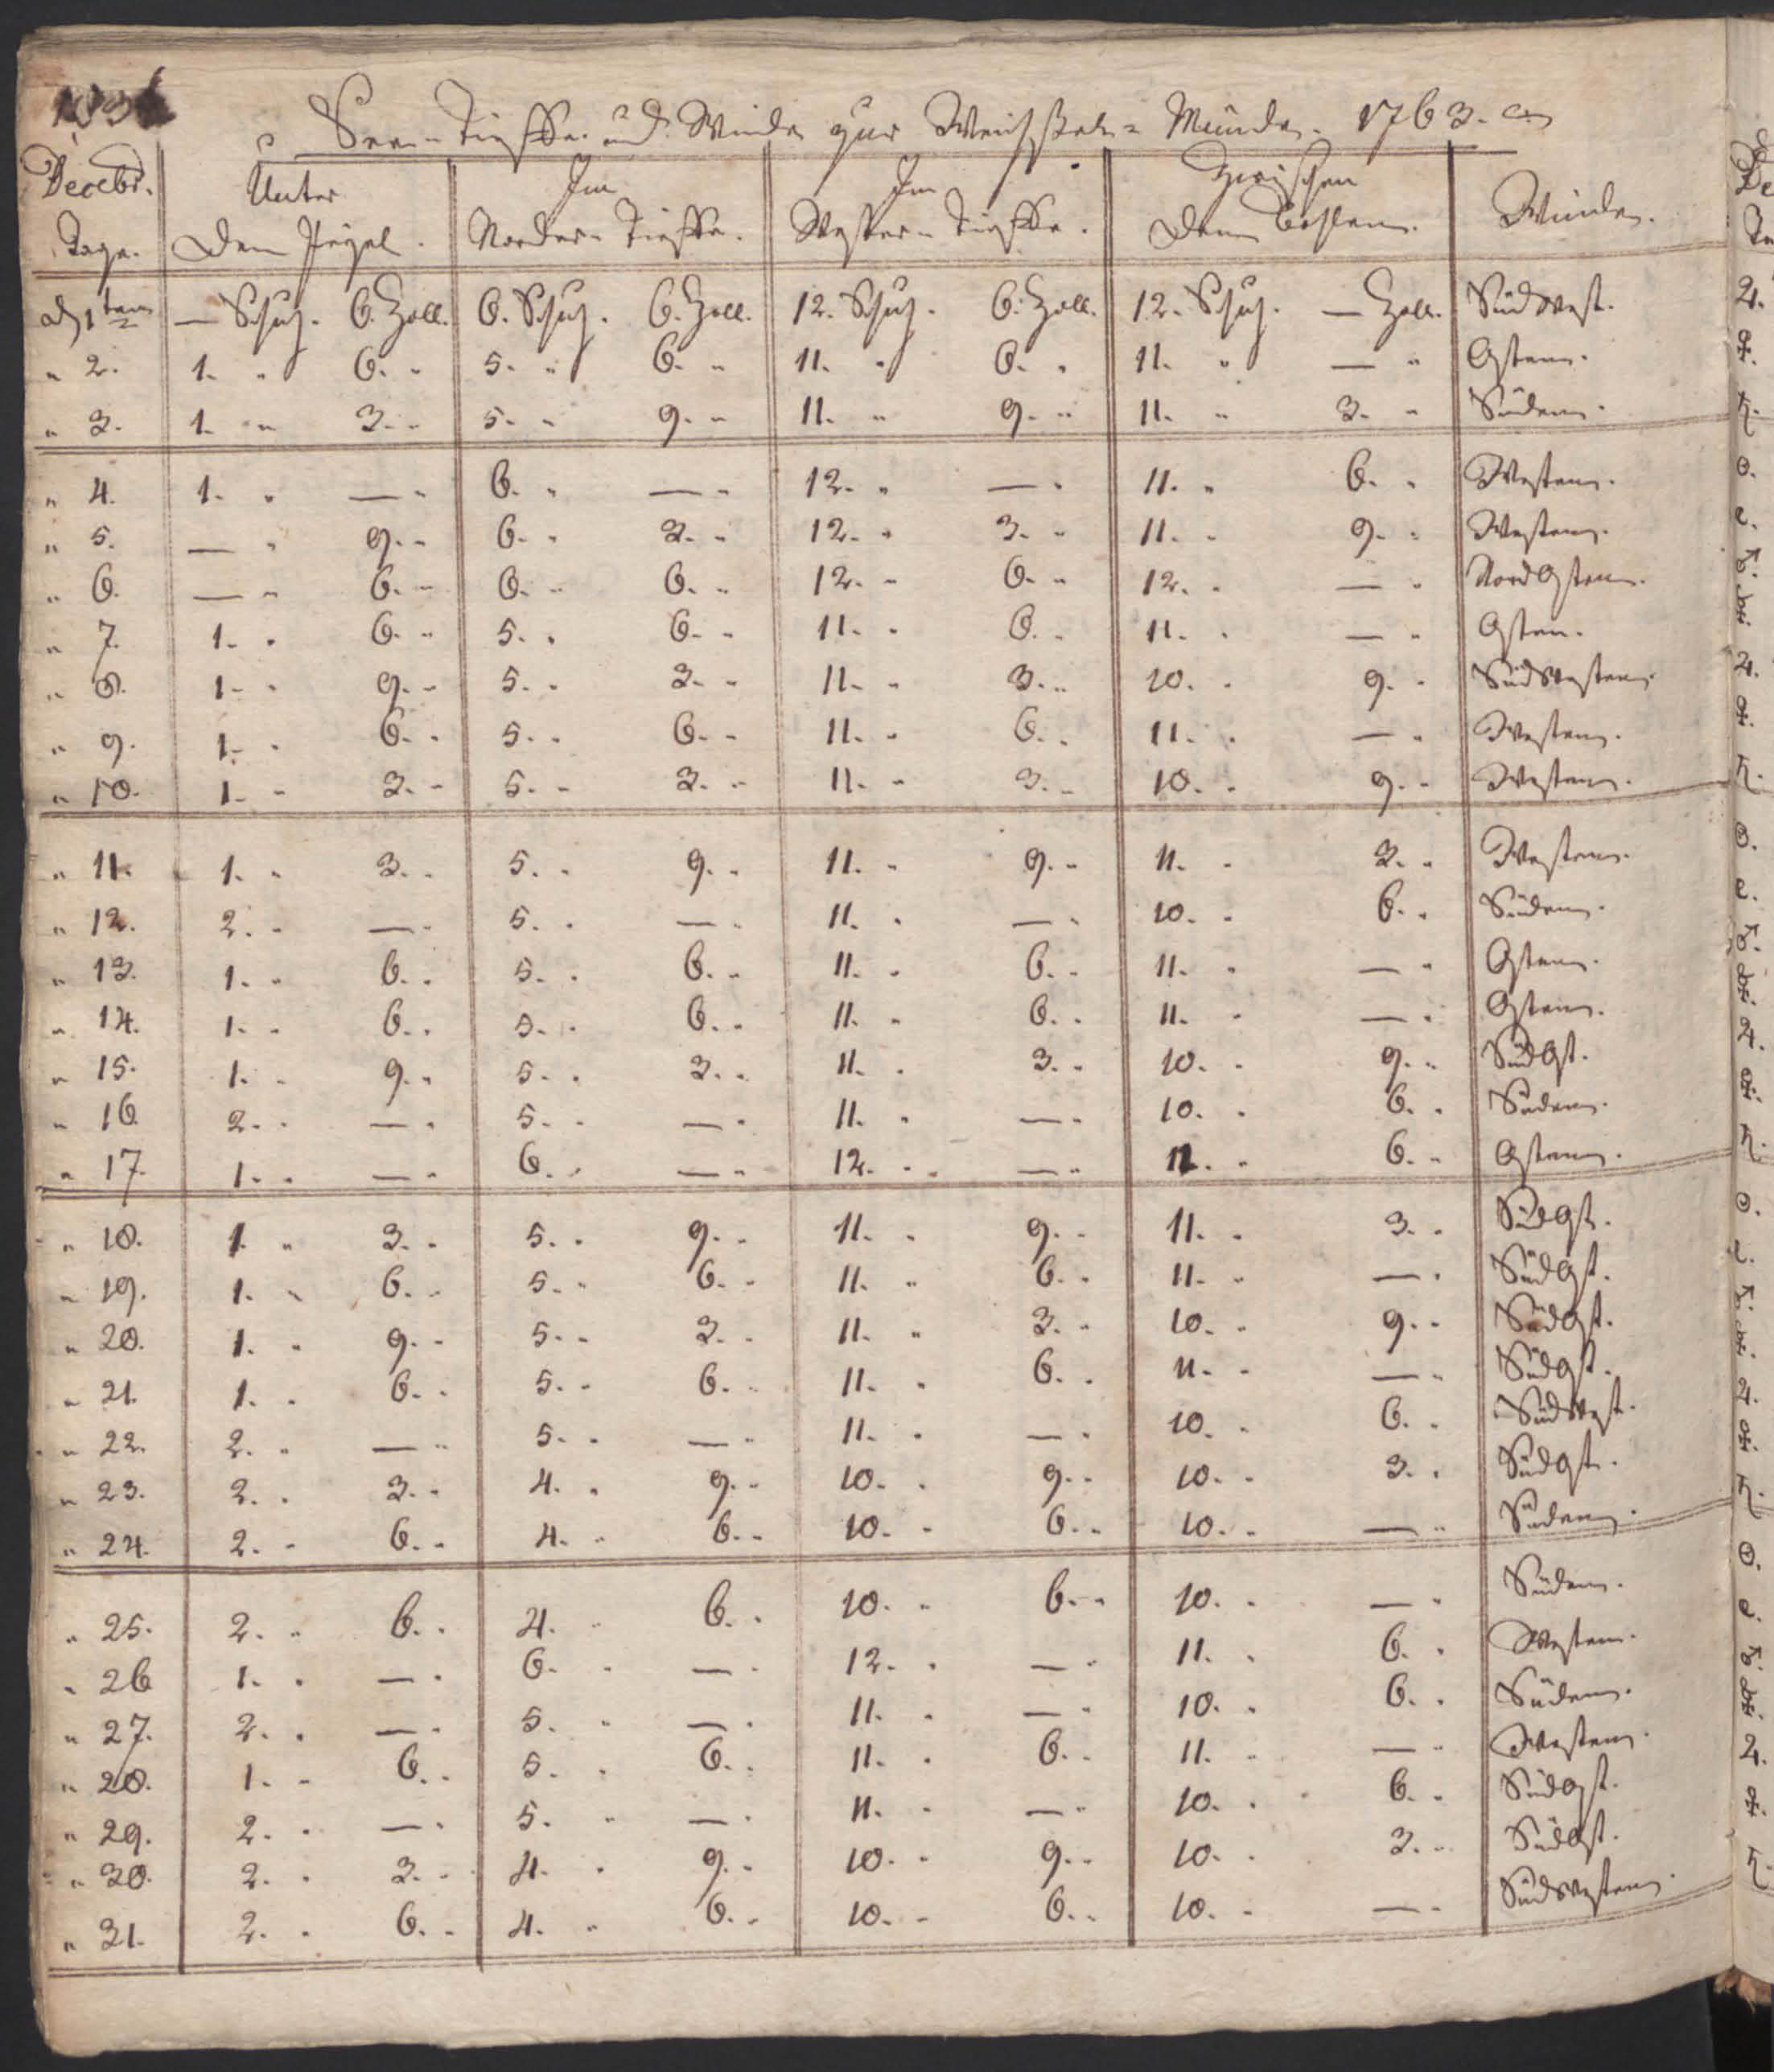 See-Tieffe und Winde zur Weichsel-Münde. 1763.
Decebr. Unter Im Im Zwischen
Tage. Dem Pegel. Norder-Tieffe. Wester-Tieffe. Denen Bohlen. Winde.
d 1ten — Schuh. 6. Zoll. 6. Schuh. 6. Zoll. 12. Schuh. 6. Zoll. 12. Schuh. — Zoll. SüdWest.
" 2. 1. " 6. " 5. " 6. " 11. " 6. " 11. " — " Osten.
" 3. 1. " 3. " 5. " 9. " 11. " 9. " 11. " 3. " Süden.
" 4. 1. " — " 6. " — " 12. " — " 11. " 6. " Westen.
" 5. — " 9. " 6. " 3. " 12. " 3. " 11. " 9. " Westen.
" 6. — " 6. " 6. " 6. " 12. " 6. " 12. " — " NordOsten.
" 7. 1. " 6. " 5. " 6. " 11. " 6. " 11. " — " Osten.
" 8. 1. " 9. " 5. " 3. " 11. " 3. " 10. " 9. " SüdWesten.
" 9. 1. " 6. " 5. " 6. " 11. " 6. " 11. " — " Westen.
" 10. 1. " 3. " 5. " 3. " 11. " 3. " 10. " 9. " Westen.
" 11. 1. " 3. " 5. " 9. " 11. " 9. " 11. " 3. " Westen.
" 12. 2. " — " 5. " — " 11. " — " 10. " 6. " Süden.
" 13. 1. " 6. " 5. " 6. " 11. " 6. " 11. " — " Osten.
" 14. 1. " 6. " 5. " 6. " 11. " 6. " 11. " — " Osten.
" 15. 1. " 9. " 5. " 3. " 11. " 3. " 10. " 9. " SüdOst.
" 16. 2. " — " 5. " — " 11. " — " 10. " 6. " Süden.
" 17. 1. " — " 6. " — " 12. " — " 11. " 6. " Osten.
" 18. 1. " 3. " 5. " 9. " 11. " 9. " 11. " 3. " SüdOst.
" 19. 1. " 6. " 5. " 6. " 11. " 6. " 11. " — " SüdOst.
" 20. 1. " 9. " 5. " 3. " 11. " 3. " 10. " 9. " SüdOst.
" 21. 1. " 6. " 5. " 6. " 11. " 6. " 11. " — " SüdOst.
" 22. 2. " — " 5. " — " 11. " — " 10. " 6. " SüdWest.
" 23. 2. " 3. " 4. " 9. " 10. " 9. " 10. " 3. " SüdOst.
" 24. 2. " 6. " 4. " 6. " 10. " 6. " 10. " — " Süden.
" 25. 2. " 6. " 4. " 6. " 10. " 6. " 10. " — " Süden.
" 26 1. " — " 6. " — " 12. " — " 11. " 6. " Westen.
" 27. 2. " — " 5. " — " 11. " — " 10. " 6. " Süden.
" 28. 1. " 6. " 5. " 6. " 11. " 6. " 11. " — " Westen.
" 29. 2. " — " 5. " — " 11. " — " 10. " 6. " SüdOst.
" 30. 2. " 3. " 4. " 9. " 10. " 9. " 10. " 3. " SüdOst.
" 31. 2. " 6. " 4. " 6. " 10. " 6. " 10. " — " SüdWesten.